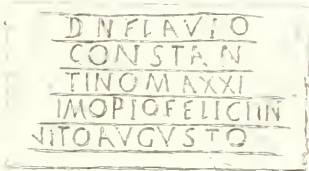 D N FLAVIO
CONSTAN
TINO MAXXI
IMO PIO FELICI IN
VITO AVGVSTO